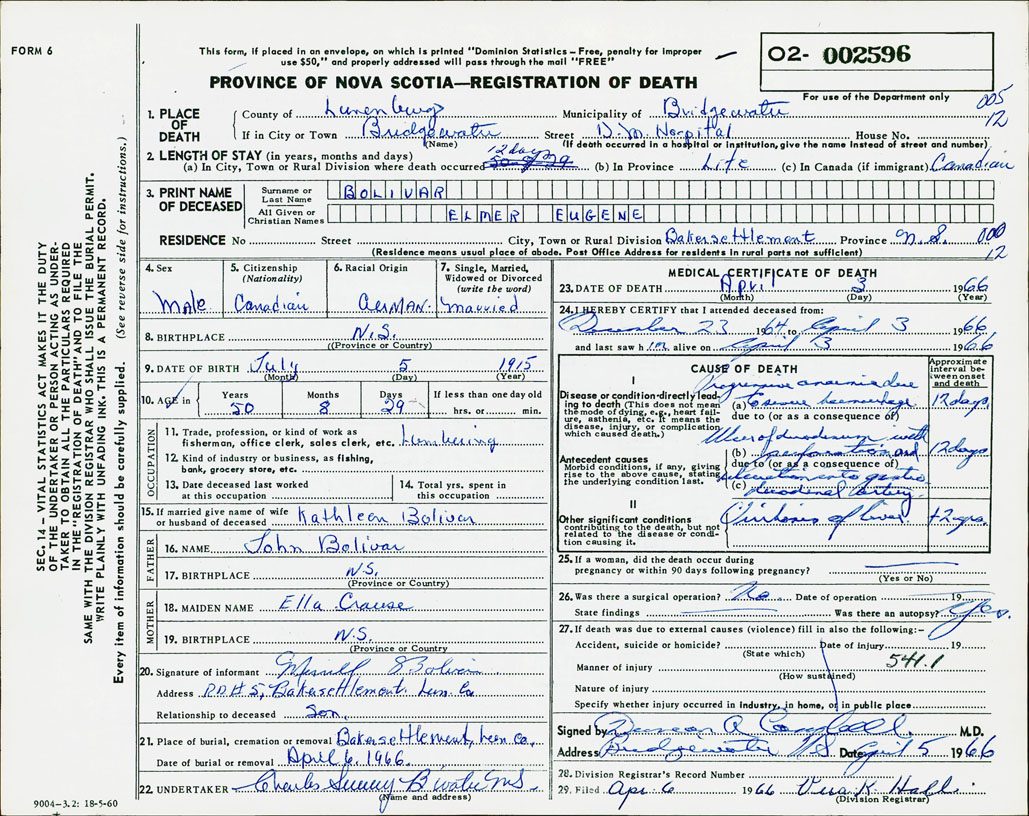 FORM 6
This form, if placed in an envelope, on which is printed "Dominion Statistics – Free, penalty for improper
use $50," and properly addressed will pass through the mail "FREE"
PROVINCE OF NOVA SCOTIA—REGISTRATION OF DEATH
02- 002596
For use of the Department only
005
12
1. PLACE OF DEATH
County of Lunenburg Municipality of Bridgewater
If in City or Town Bridgewater Street D.M. Hospital House No.
(Name) (If death occurred in a hospital or institution, give the name instead of street and number)
2. LENGTH OF STAY (in years, months and days)
12 days
(a) In City, Town or Rural Division where death occurred (b) In Province Life (c) In Canada (if immigrant) Canadian
3. PRINT NAME OF DECEASED
Surname or Last Name BOLIVAR
All Given or Christian Names ELMER EUGENE
RESIDENCE No Street City, Town or Rural Division Bakersettlement Province N.S.
000
12
(Residence means usual place of abode. Post Office Address for residents in rural parts not sufficient)
4. Sex Male
5. Citizenship (Nationality) Canadian
6. Racial Origin GERMAN.
7. Single, Married, Widowed or Divorced (write the word) Married
8. BIRTHPLACE N.S.
(Province or Country)
9. DATE OF BIRTH July 5 1915
(Month) (Day) (Year)
10. AGE in Years 50 Months 8 Days 29 If less than one day old hrs. or min.
OCCUPATION
11. Trade, profession, or kind of work as
fisherman, office clerk, sales clerk, etc. Lumbering
12. Kind of industry or business, as fishing,
bank, grocery store, etc.
13. Date deceased last worked
at this occupation
14. Total yrs. spent in
this occupation
15. If married give name of wife
or husband of deceased Kathleen Bolivar
FATHER
16. NAME John Bolivar
17. BIRTHPLACE N.S.
(Province or Country)
MOTHER
18. MAIDEN NAME Ella Crouse
19. BIRTHPLACE N.S.
(Province or Country
20. Signature of informant Bolivar
Address R.R.# 5, Bakersettlement Lun. Co.
Relationship to deceased Son.
21. Place of burial, cremation or removal Bakersettlement, Lun Co,
Date of burial or removal April 6, 1966.
22. UNDERTAKER Charles B'water NS
(Name and address)
MEDICAL CERTIFICATE OF DEATH
23. DATE OF DEATH April 3 1966
(Month) (Day) (Year)
24. I HEREBY CERTIFY that I attended deceased from:
December 23 1964 to April 3 1966
and last saw him alive on April 3 1966
CAUSE OF DEATH
Approximate interval between onset and death
I
Disease or condition directly leading to death (This does not mean the mode of dying, e.g., heart failure, asthenia, etc. It means the disease, injury, or complication which caused death.)
Progressive anaemia due
(a) to severe haemorrhage 12 days
due to (or as a consequence of)
Antecedent causes
Morbid conditions, if any, giving rise to the above cause, stating the underlying condition last.
Ulcer of duodenum with
(b) perforation and 12 days
due to (or as a consequence of)
ulceration into gastro
(c) duodenal artery.
II
Other significant conditions
contributing to the death, but not related to the disease or condition causing it.
Cirrhosis of liver. +2 yrs.
25. If a woman, did the death occur during
pregnancy or within 90 days following pregnancy?
(Yes or No)
26. Was there a surgical operation? No Date of operation 19
State findings Was there an autopsy? Yes.
27. If death was due to external causes (violence) fill in also the following:–
Accident, suicide or homicide? Date of injury 19
(State which)
541.1
Manner of injury
(How sustained)
Nature of injury
Specify whether injury occurred in industry, in home, or in public place
Signed by Duncan A Campbell. M.D.
Address Bridgewater N.S. Date April 5 1966
28. Division Registrar's Record Number
29. Filed Apr. 6 1966 Vera K. Hall
(Division Registrar)
SEC. 14 – VITAL STATISTICS ACT MAKES IT THE DUTY
OF THE UNDERTAKER OR PERSON ACTING AS UNDER-
TAKER TO OBTAIN ALL THE PARTICULARS REQUIRED
IN THE "REGISTRATION OF DEATH" AND TO FILE THE
SAME WITH THE DIVISION REGISTRAR WHO SHALL ISSUE THE BURIAL PERMIT.
WRITE PLAINLY WITH UNFADING INK. THIS IS A PERMANENT RECORD.
Every item of information should be carefully supplied. (See reverse side for instructions.)
9004-3.2: 18-5-60